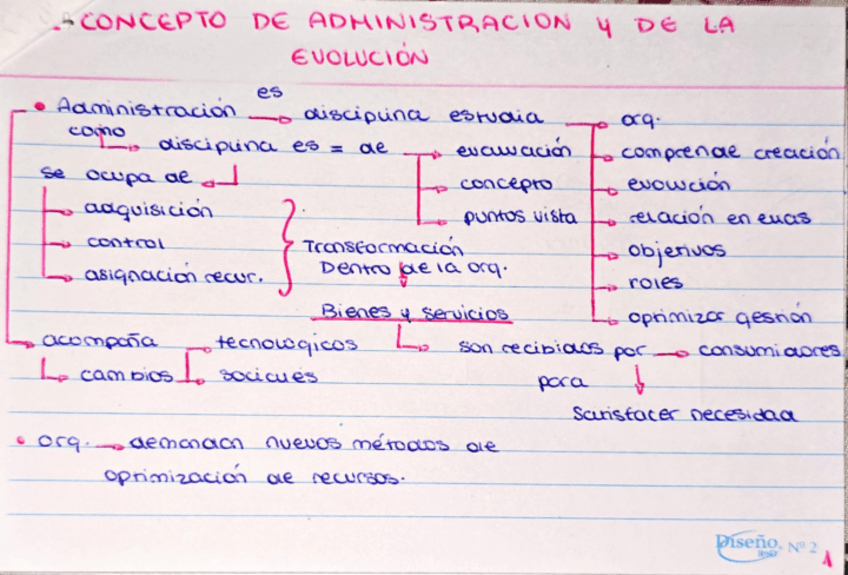 CONCEPTO DE ADMINISTRACION Y DE LA
EVOLUCIÓN
• Administración es disciplina estudia org.
como disciplina es = de evaluación comprende creación
se ocupa de concepto evolución
adquisición puntos vista relación en ellas
control Transformación objetivos
asignación recur. Dentro de la org. roles
Bienes y servicios optimizar gestión
acompaña tecnologicos son recibidos por consumidores
cambios sociales para
Satisfacer necesidad
• org. demandan nuevos métodos de
optimización de recursos.
Diseño. Nº 2
1